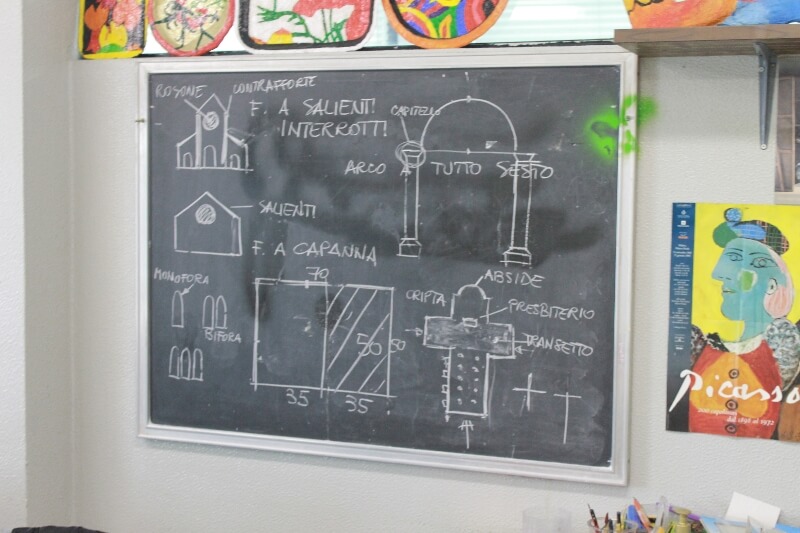 ROSONE
CONTRAFFORTE
F. A SALIENTI
INTERROTTI
CAPITELLO
ARCO A TUTTO SESTO
SALIENTI
F. A CAPANNA
MONOFORA
BIFORA
70
50
50
35
35
ABSIDE
CRIPTA
PRESBITERIO
TRANSETTO
Picasso